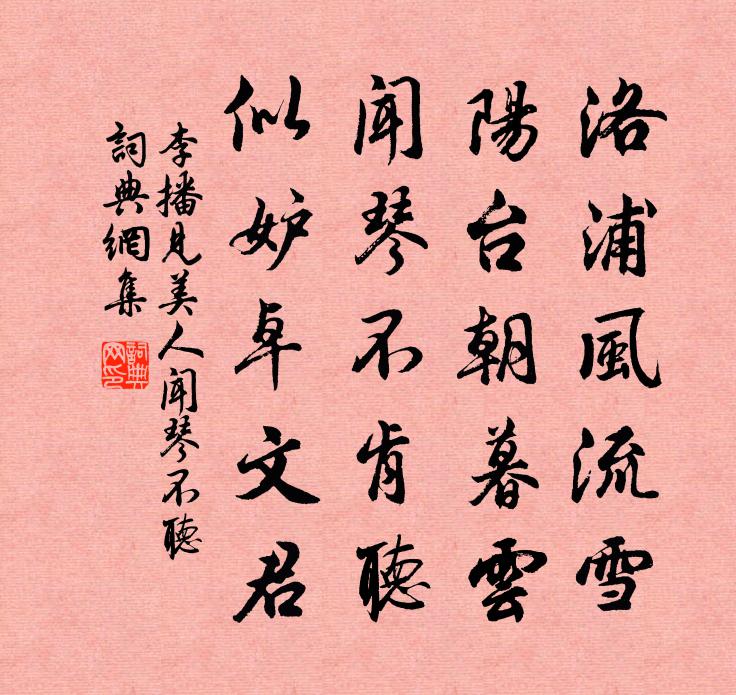 洛浦風流雪
陽台朝暮雲
聞琴不肯聽
似妒卓文君
李播見美人聞琴不聽
詞典網集
詞典網印